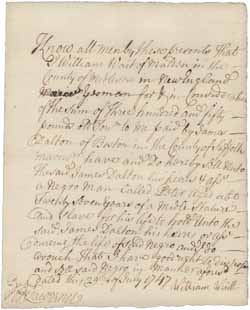 Know all men by these presents That
I William Wait of Malden in the
County of Middlesex in New England
Yeoman for & in Consideration
of the Sum of Three hundred and fifty
pounds old Ten^r to me paid by James
Dalton of Boston in the County of Suffolk
have and do hereby Sell Unto
the said James Dalton his heirs
a Negro Man Called Peter Aged abt
Twenty Seven years of a Midle Stature
and Slave for his life to hold Unto the
Said James Dalton his heirs
the life of said Negro and I do
Vouch that I have good right to dispose of
and Sell said Negro in Manner
Dated this 29 of July 1747
William Wait